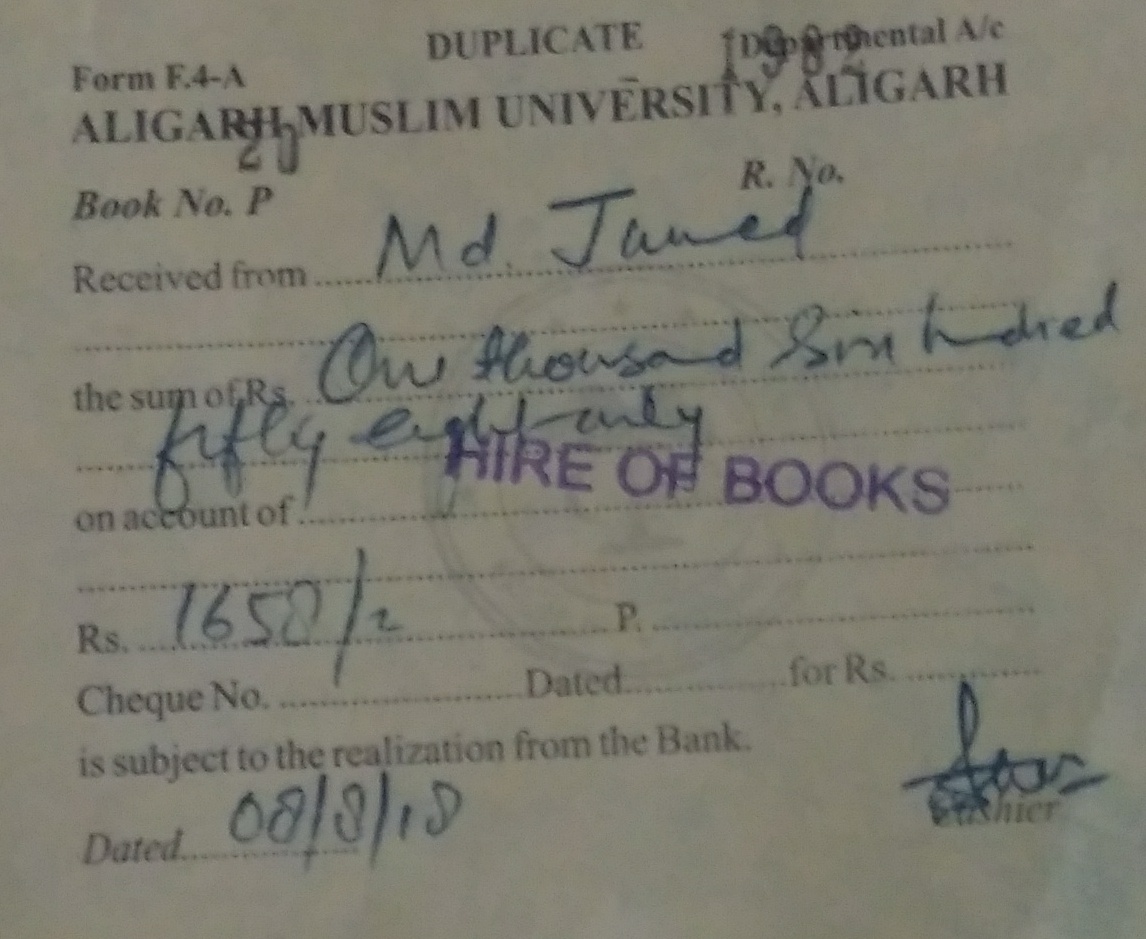 DUPLICATE
Departmental A/c
1982
Form F.4-A
ALIGARH MUSLIM UNIVERSITY, ALIGARH
20
Book No. P
R. No.
Received from Md. Jawed
the sum of Rs. One thousand Six hundred
fifty eight only
HIRE OF BOOKS
on account of
Rs. 1658/= P.
Cheque No. Dated for Rs.
is subject to the realization from the Bank.
Cashier
Dated 08/8/18